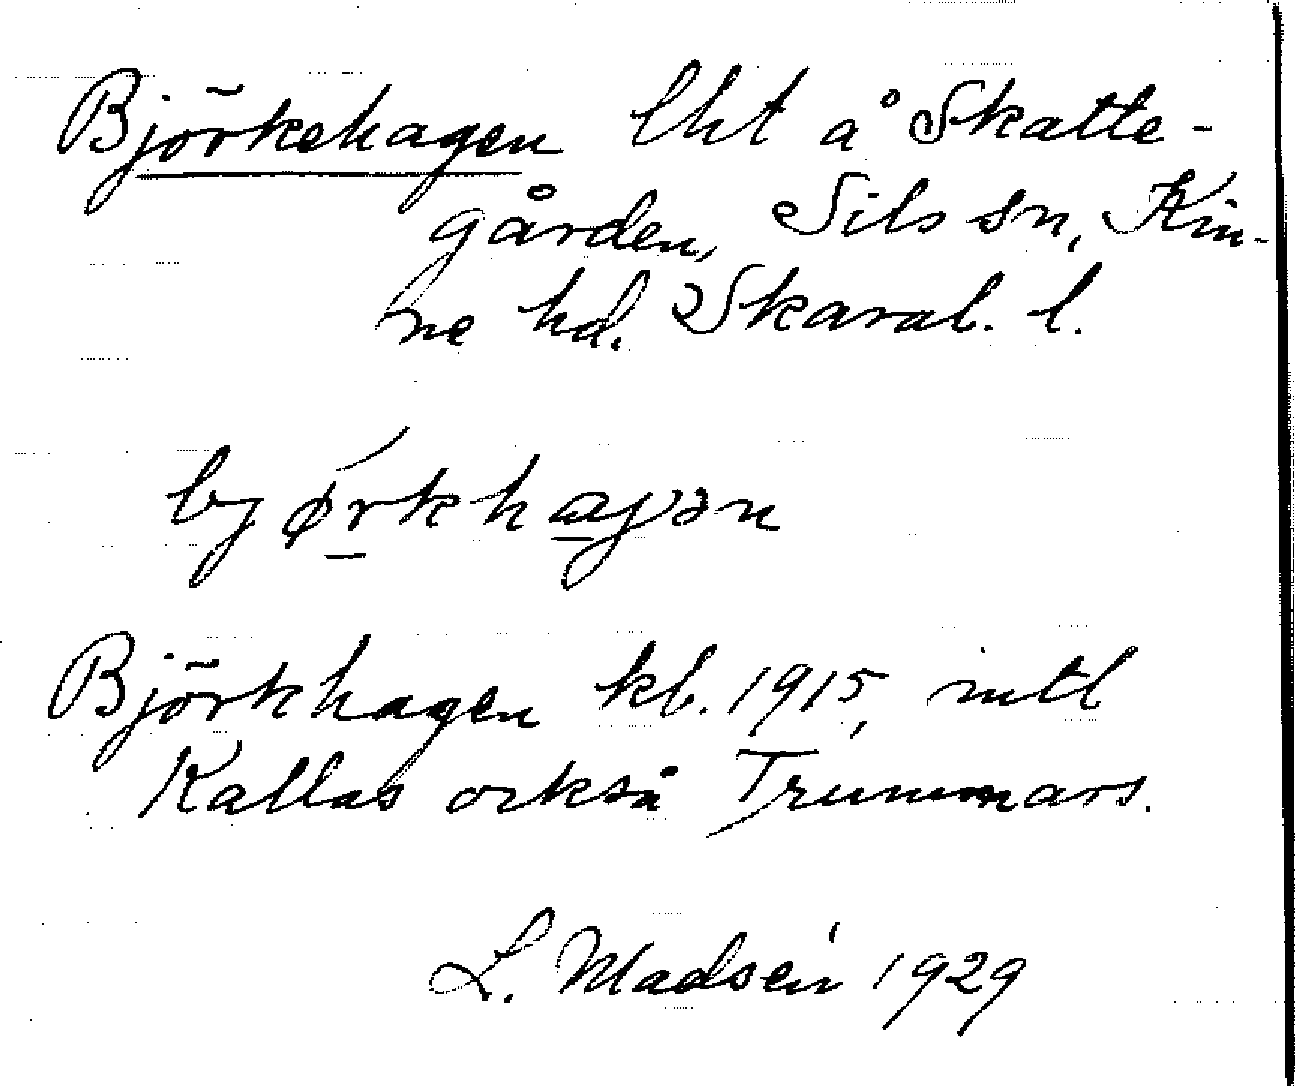 Björkehagen lht å Skatte-
gården, Sils sn, Kin-
ne hd. Skarab. l.
bjørkhagən
Björkhagen kb. 1915, mtl
Kallas också Trummars.
L. Madsén 1929